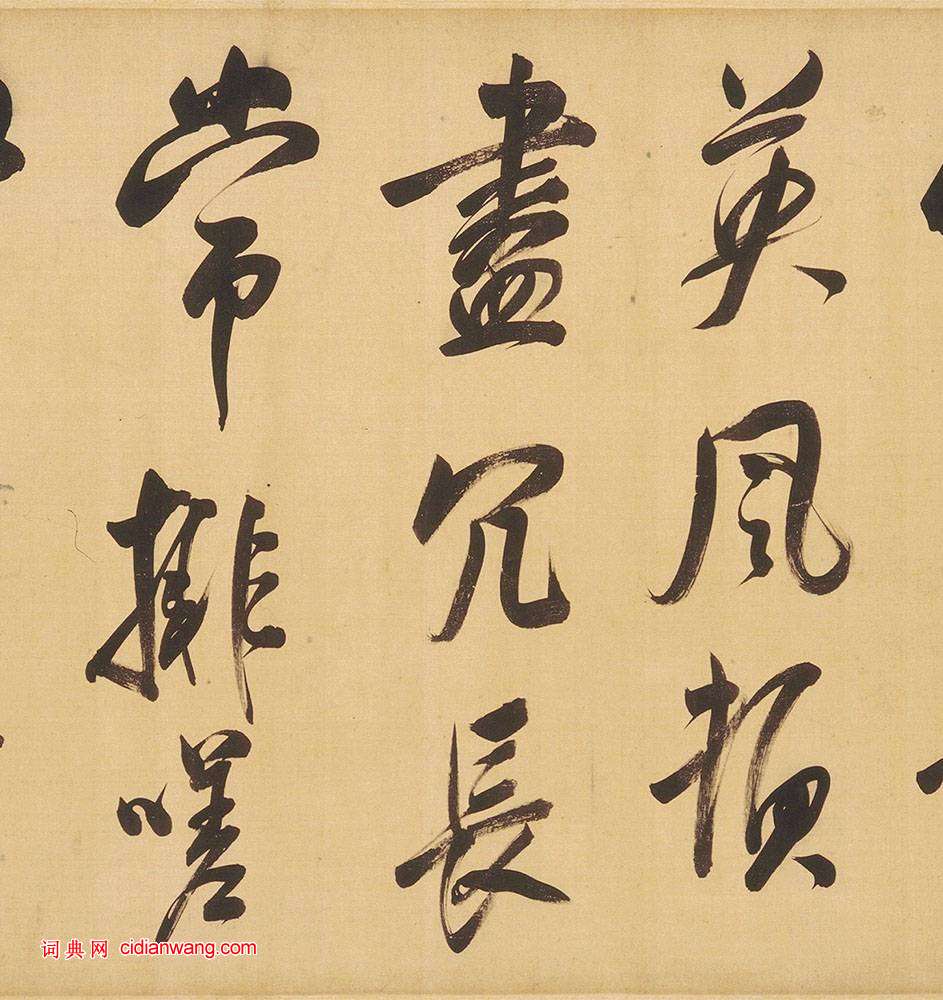 英風損
盡冗長
常排嗟
词典网 cidianwang.com